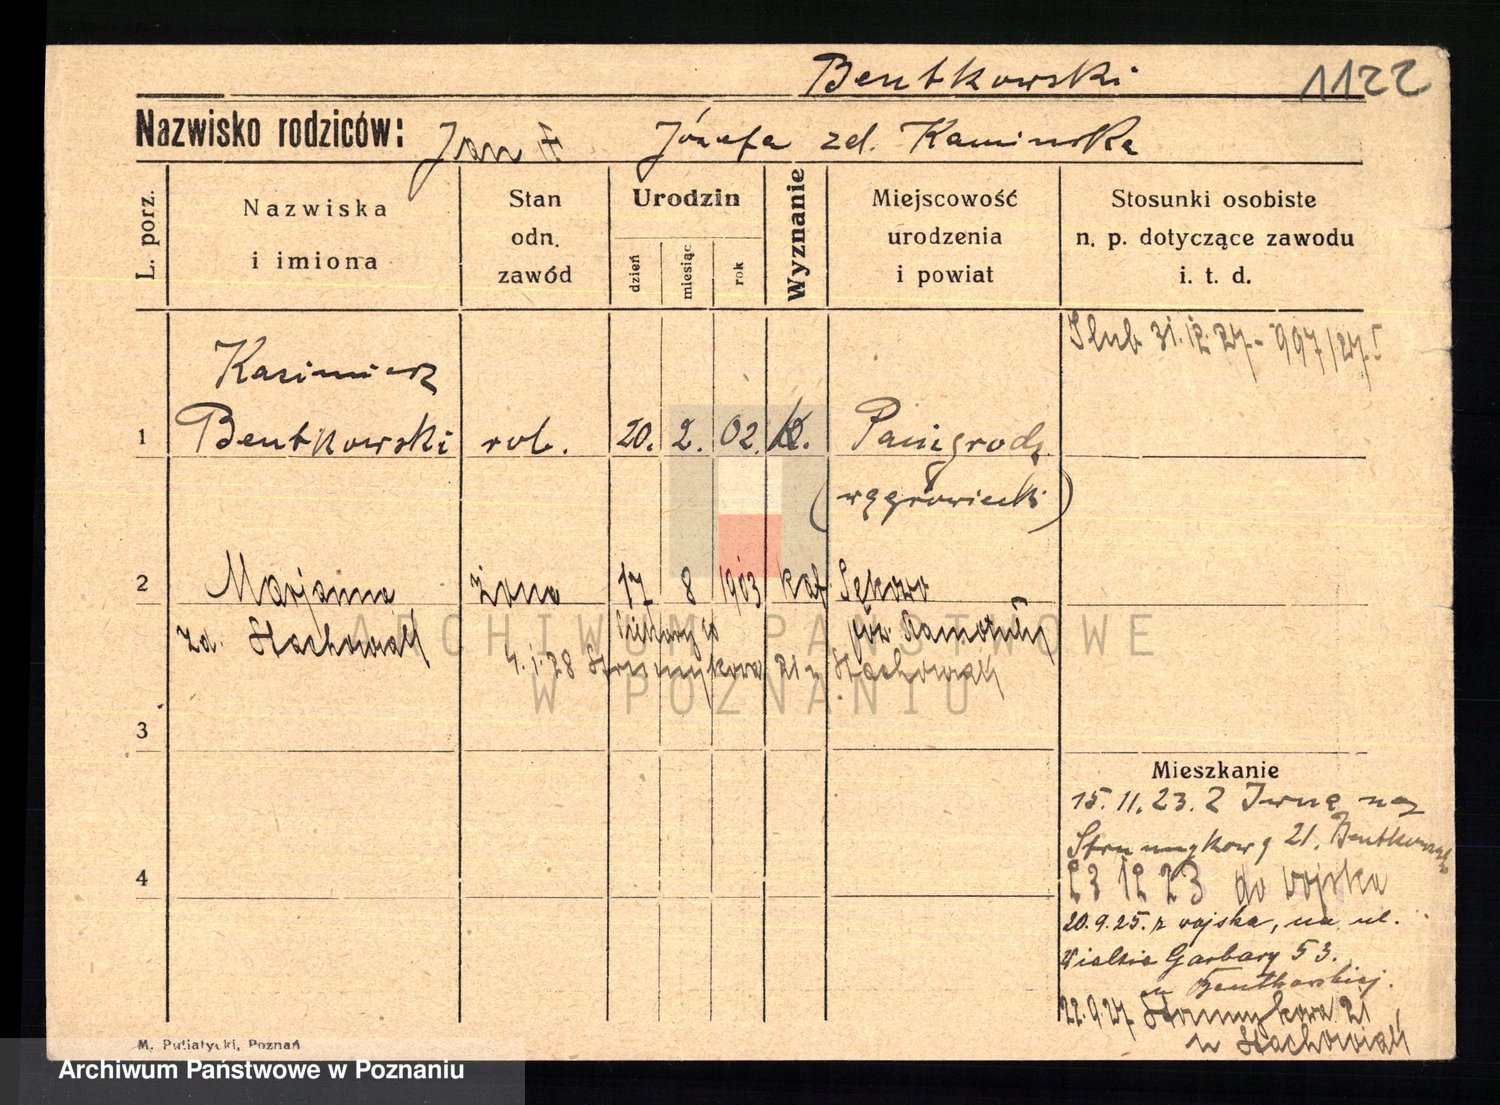 Bentkowski 1122
Nazwisko rodziców: Jan Józefa zd. Kaminska
L. porz.
Nazwiska
i imiona
Stan
odn.
zawód
Urodzin
dzień
miesiąc
rok
Wyznanie
Miejscowość
urodzenia
i powiat
Stosunki osobiste
n. p. dotyczące zawodu
i. t. d.
Slub 31.12.27 - 997/27.
Kazimierz
1 Bentkowski rob. 20. 2. 02. K. Panigrodz
(węgrowiecki)
2 Marjanna żona 17 8 1903 kat Sękowo
zd. Stachowiak
4.1.28 Strumykowa 21 u Stachowiak
3
4
Mieszkanie
15.11.23. Z na
Strumykową 21. Bentkowski
23 12 23 do wojska
20.9.25. z wojska, na ul.
Wielkie Garbary 53.
u Bentkowskiej.
22.9.27. Strumykowa 21
u Stachowiak
M. Putiatycki, Poznań
ARCHIWUM PAŃSTWOWE
W POZNANIU
Archiwum Państwowe w Poznaniu